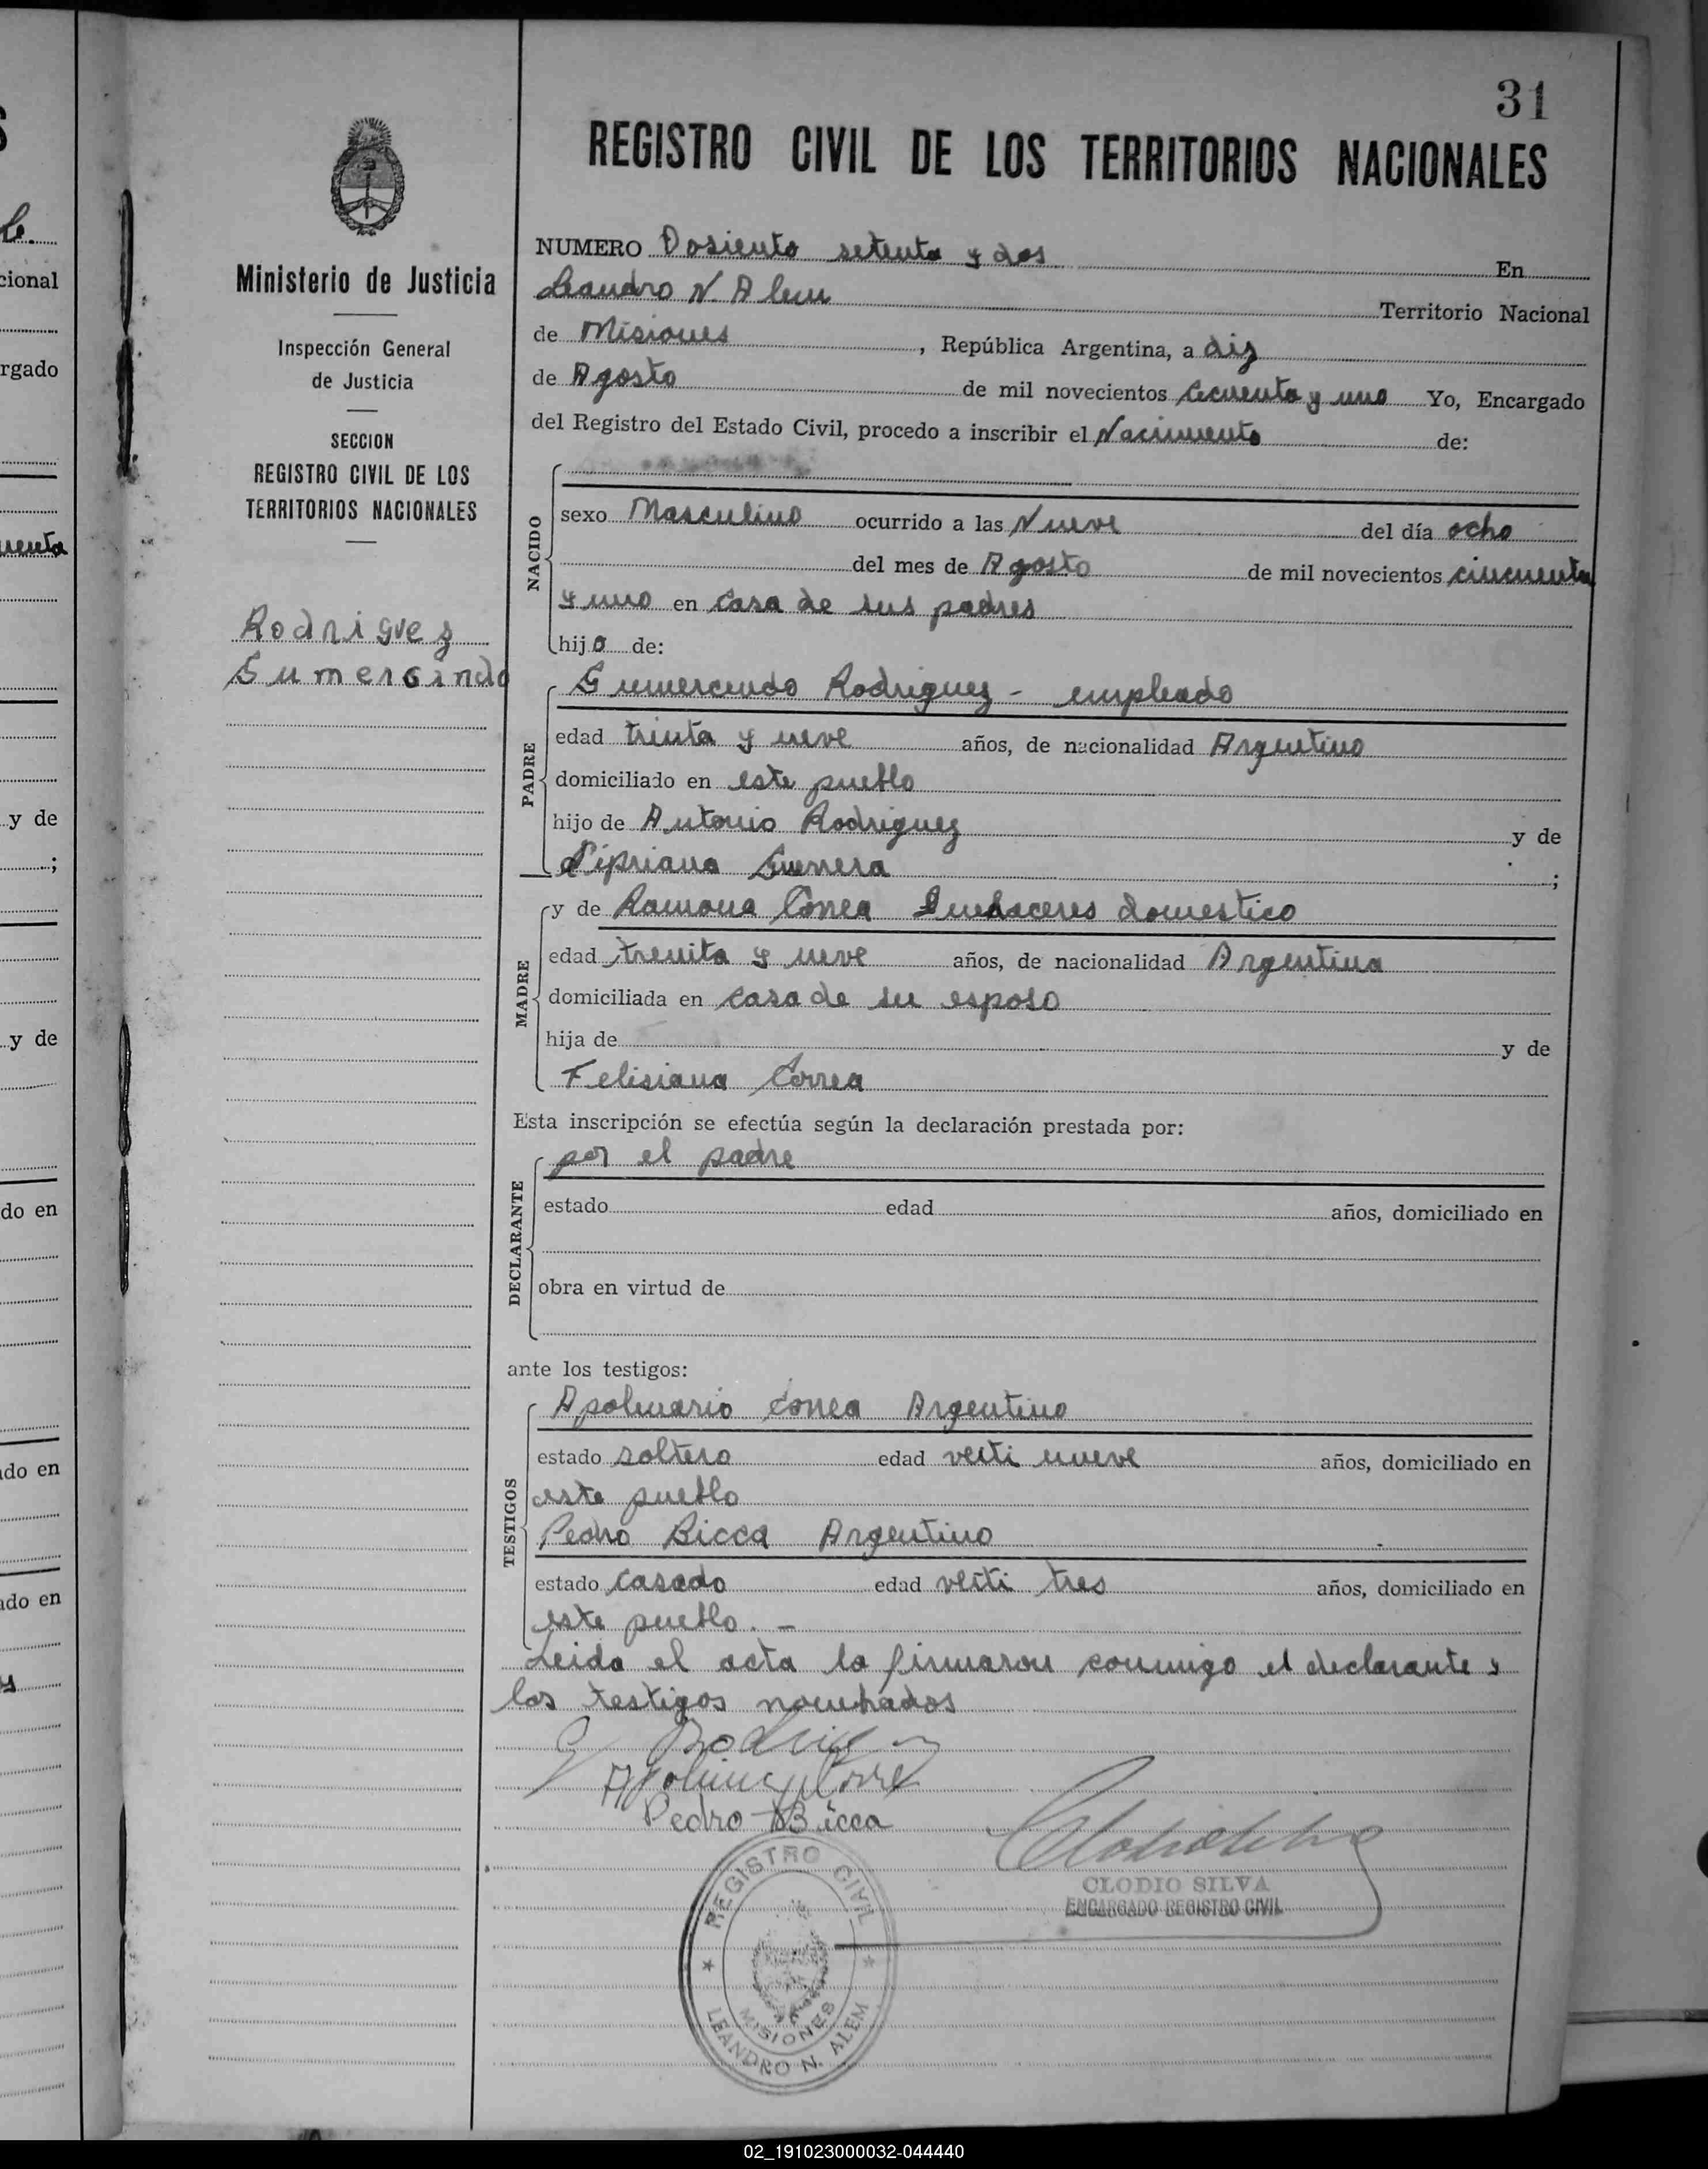 31
REGISTRO CIVIL DE LOS TERRITORIOS NACIONALES
Ministerio de Justicia
Inspección General
de Justicia
SECCION
REGISTRO CIVIL DE LOS
TERRITORIOS NACIONALES
Rodriguez
Gumersindo
NUMERO Dosiento setenta y dos En
Leandro N. Alem Territorio Nacional
de Misiones, República Argentina, a diz
de Agosto de mil novecientos cicuenta y uno Yo, Encargado
del Registro del Estado Civil, procedo a inscribir el Nacimiento de:
NACIDO
sexo Masculino ocurrido a las Nueve del día ocho
del mes de Agosto de mil novecientos cincuenta
y uno en casa de sus padres
hijo de:
PADRE
Gumercendo Rodriguez - empleado
edad trinta y neve años, de nacionalidad Argentino
domiciliado en este pueblo
hijo de Antonio Rodriguez y de
Sipriana Guerrera ;
MADRE
y de Ramona Correa domestico
edad trenita y neve años, de nacionalidad Argentina
domiciliada en casa de su esposo
hija de y de
Felisiana Correa
Esta inscripción se efectúa según la declaración prestada por:
DECLARANTE
por el padre
estado edad años, domiciliado en
obra en virtud de
ante los testigos:
TESTIGOS
Apolinario Correa Argentino
estado soltero edad veiti nueve años, domiciliado en
este pueblo
Pedro Bicca Argentino
estado casado edad veiti tres años, domiciliado en
este pueblo. -
Leida el acta la firmaron conmigo el declarante y
los testigos nombrados
Pedro Bicca
CLODIO SILVA
ENCARGADO REGISTRO CIVIL
REGISTRO CIVIL
MISIONES
LEANDRO N. ALEM
cional
rgado
uenta
y de
;
y de
do en
do en
do en
02_191023000032-044440